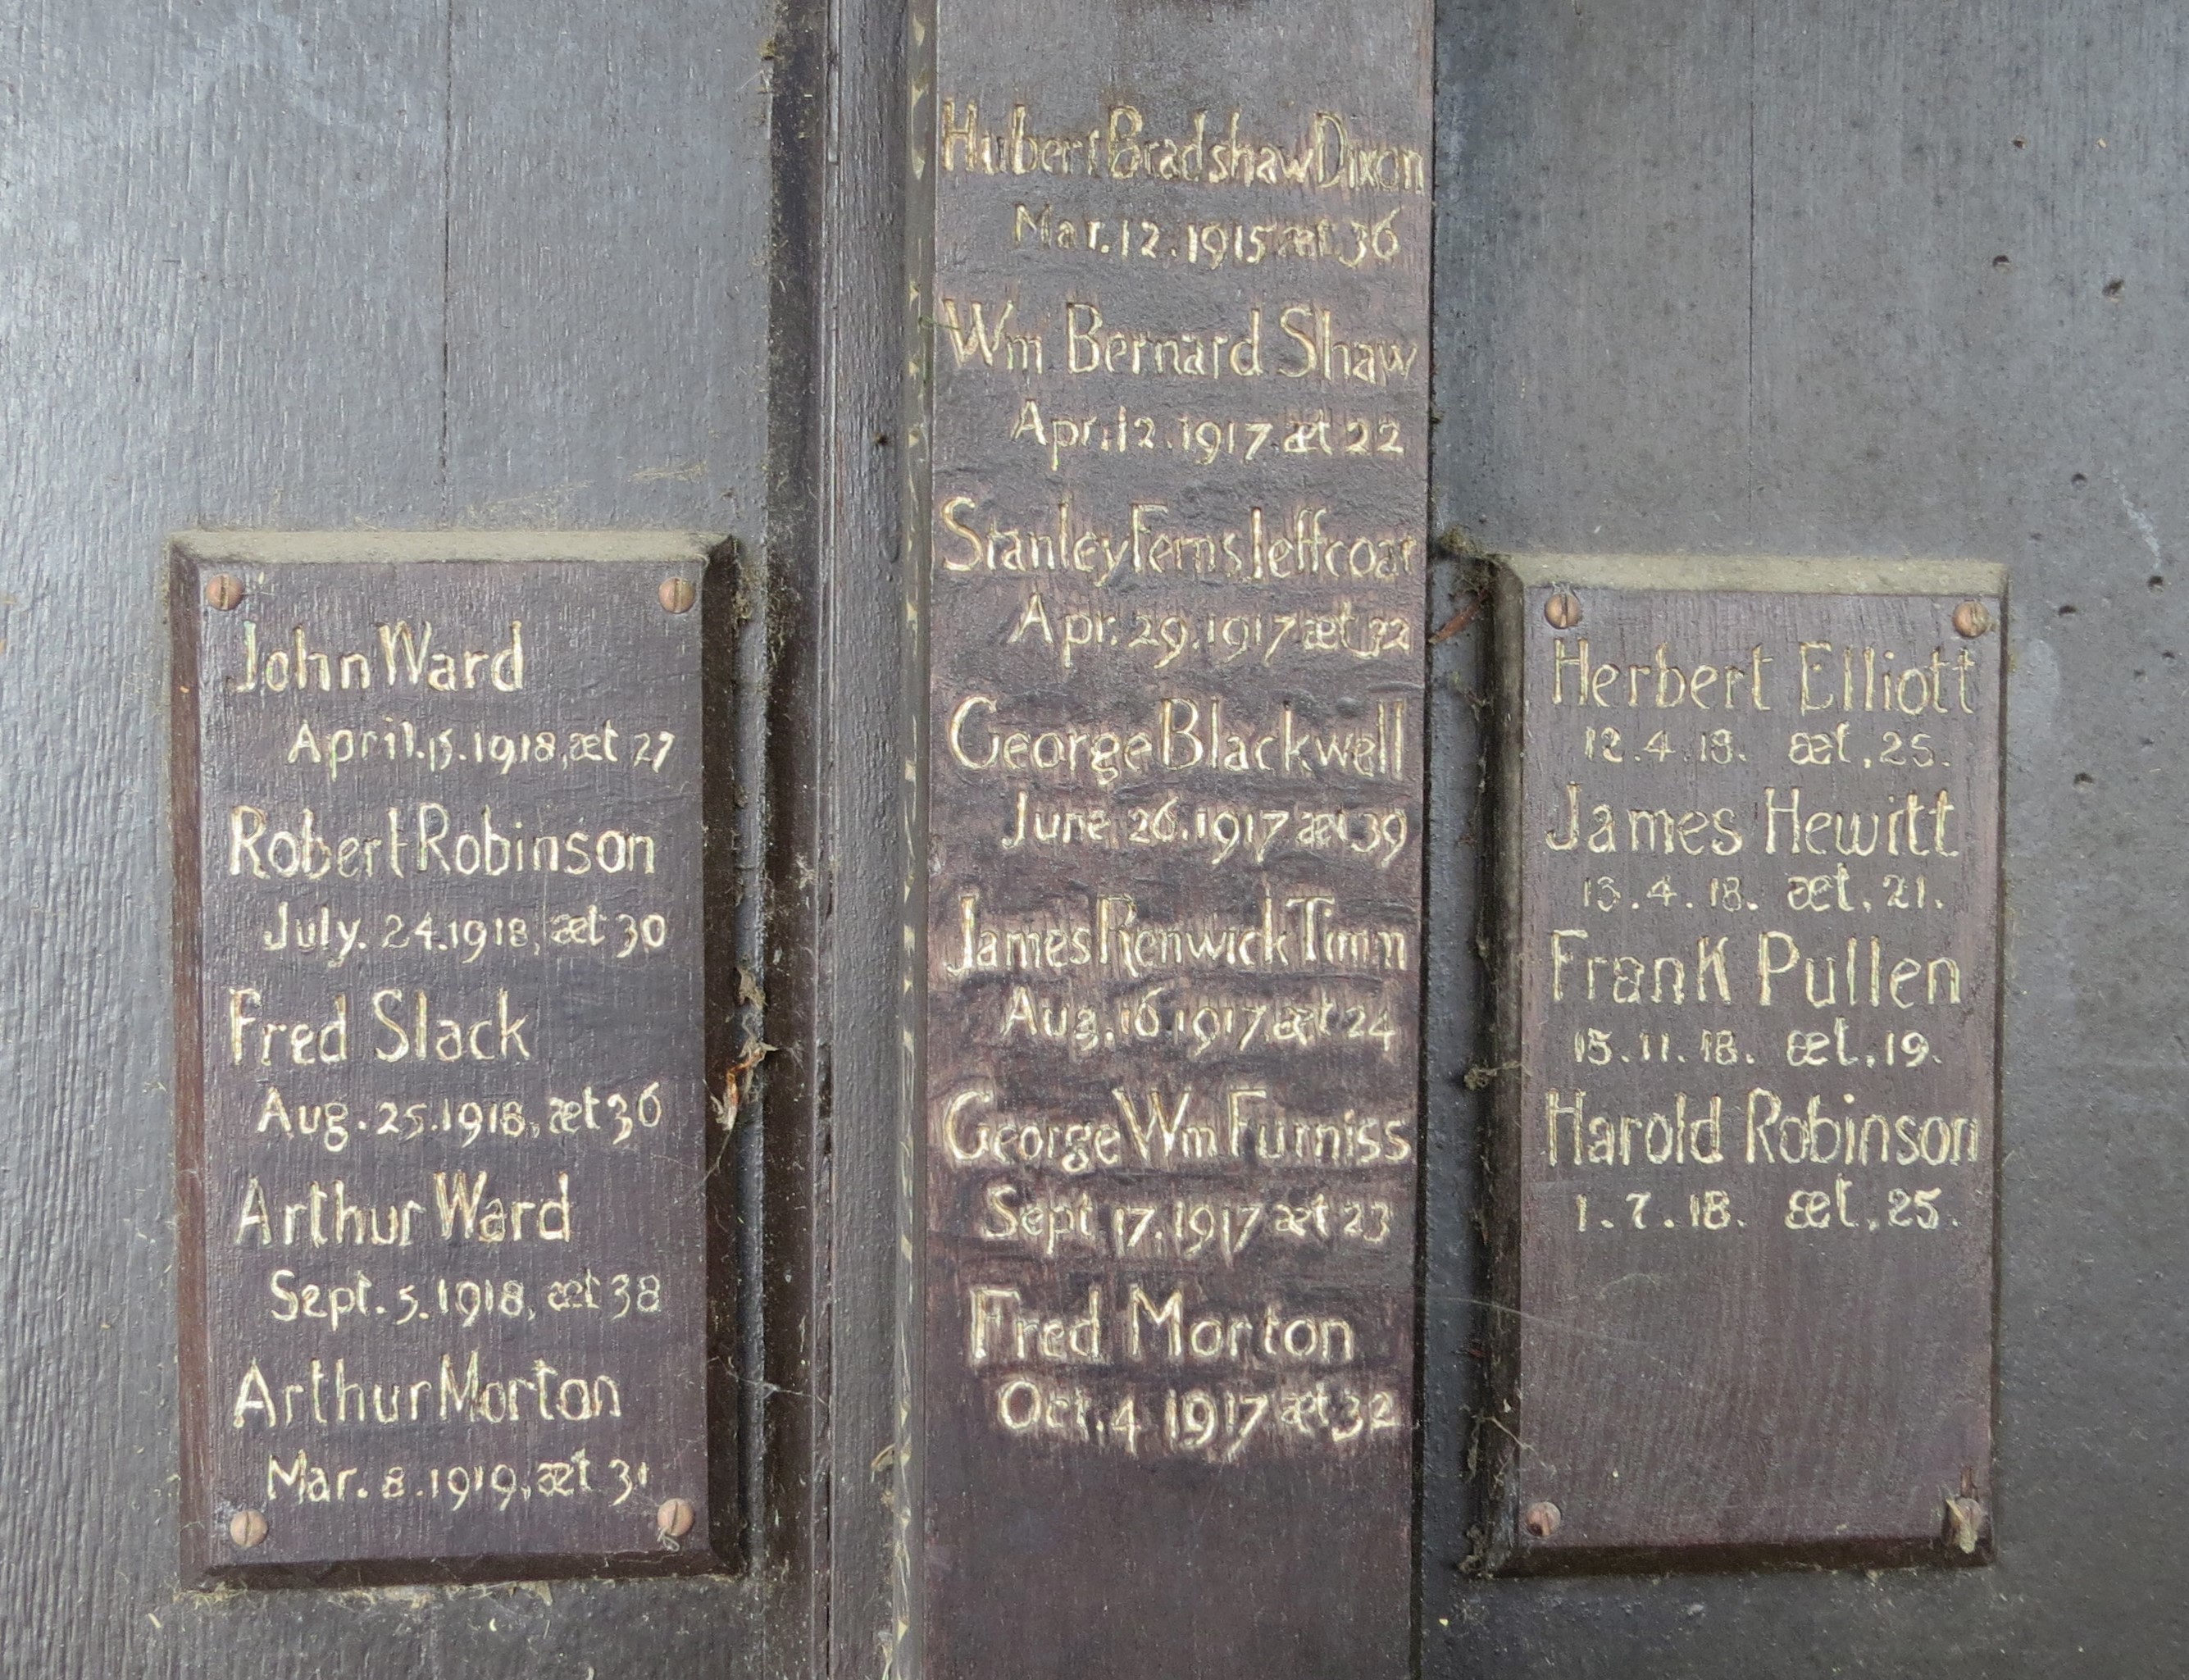 John Ward
April.15.1918, æt 27
Robert Robinson
July. 24.1918, æt 30
Fred Slack
Aug. 25.1918, æt 36
Arthur Ward
Sept. 5.1918, æt 38
Arthur Morton
Mar. 8.1919, æt 31
Hubert Bradshaw Dixon
Mar. 12.1915 æt 36
Wm Bernard Shaw
Apr. 12.1917. æt 22
Stanley Ferns Jeffcoat
Apr. 29.1917 æt 32
George Blackwell
June 26.1917 æt 39
James Renwick Timm
Aug. 16.1917. æt 24
George Wm Furniss
Sept 17.1917 æt 23
Fred Morton
Oct. 4 1917 æt 32
Herbert Elliott
12.4.18. æt. 25.
James Hewitt
13.4.18. æt. 21.
Frank Pullen
15.11.18. æt. 19.
Harold Robinson
1.7.18. æt. 25.